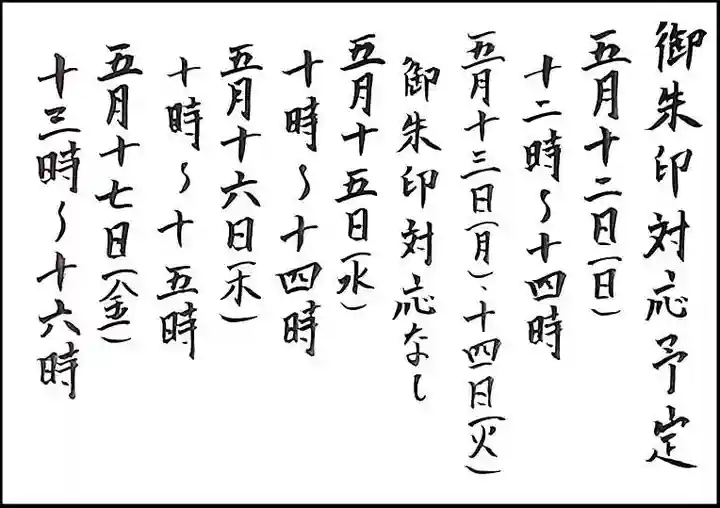 御朱印対応予定
五月十二日(日)
十二時～十四時
五月十三日(月)、十四日(火)
御朱印対応なし
五月十五日(水)
十時～十四時
五月十六日(木)
十時～十五時
五月十七日(金)
十三時～十六時